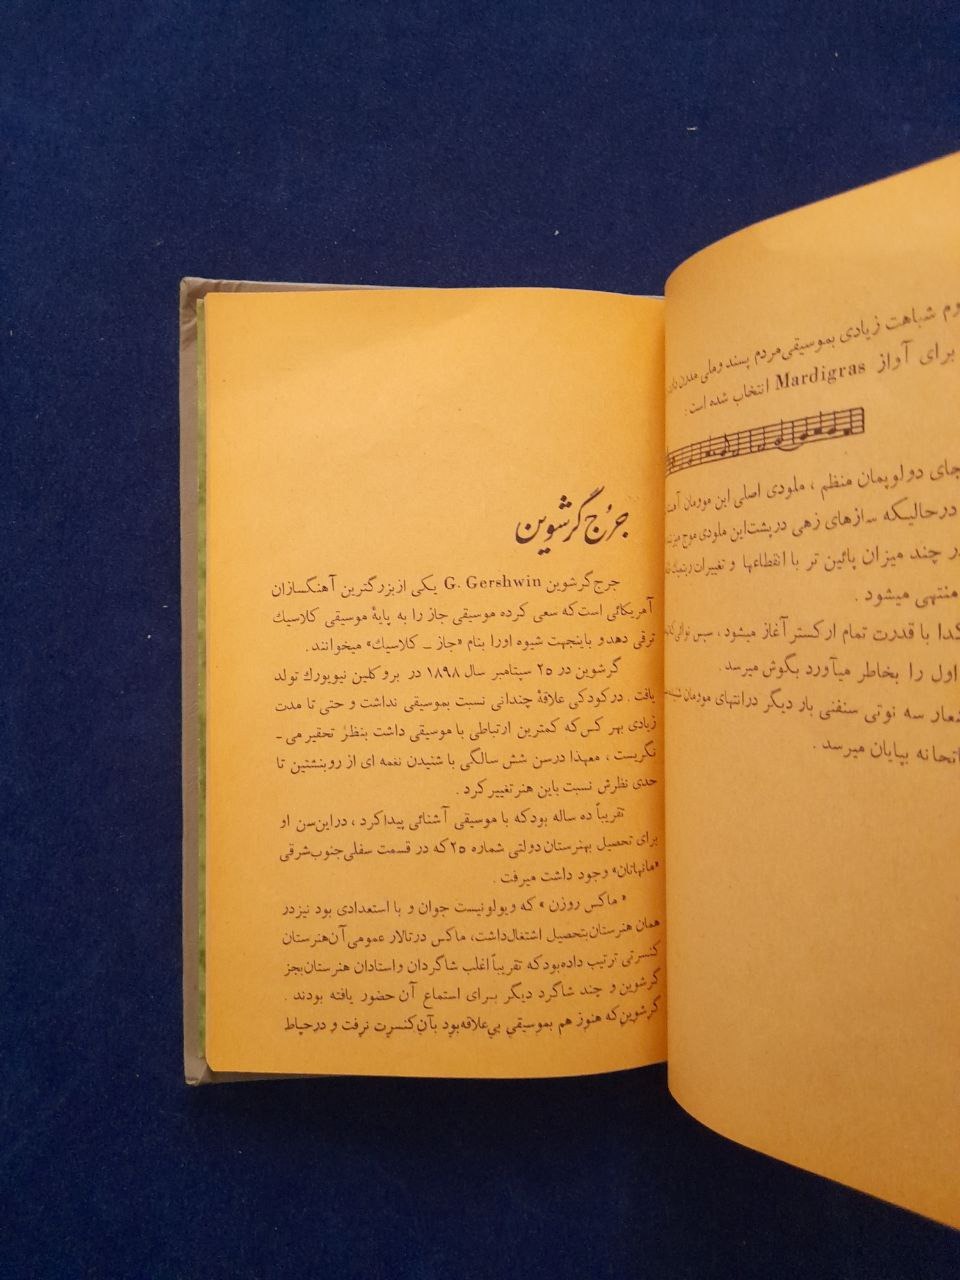 وم شباهت زیادی بموسیقی مردم پسند و ملی
برای آواز Mardigras انتخاب شده است :
جای دولوپمان منظم ، ملودی اصلی این مورمان
درحالیکه سازهای زهی در پشت این ملودی موج
ر چند میزان پائین تر با انقطاعها و تغییرات
منتهی میشود .
کدا با قدرت تمام ارکستر آغاز میشود ، سپس
اول را بخاطر میآورد بگوش میرسد .
شعار سه نوتی سنفنی بار دیگر درانتهای مورمان
اتحانه بپایان میرسد .
جرج گرشوین
جرج گرشوین G. Gershwin یکی از بزرگترین آهنگسازان
آمریکائی است که سعی کرده موسیقی جاز را به پایهٔ موسیقی کلاسیك
ترقی دهد و باینجهت شیوه اورا بنام «جاز ـ کلاسیك» میخوانند .
گرشوین در ۲۵ سپتامبر سال ۱۸۹۸ در بروکلین نیویورك تولد
یافت . در کودکی علاقهٔ چندانی نسبت بموسیقی نداشت و حتی تا مدت
زیادی بهر کس که کمترین ارتباطی با موسیقی داشت بنظر تحقیر می ـ
نگریست ، معهذا درسن شش سالگی با شنیدن نغمه ای از روبنشتین تا
حدی نظرش نسبت باین هنر تغییر کرد .
تقریباً ده ساله بود که با موسیقی آشنائی پیدا کرد ، دراین سن او
برای تحصیل بهنرستان دولتی شماره ۲۵ که در قسمت سفلی جنوب شرقی
«مانهاتان» وجود داشت میرفت .
« ماکس روزن » که ویولونیست جوان و با استعدادی بود نیز در
همان هنرستان بتحصیل اشتغال داشت، ماکس درتالار عمومی آن هنرستان
کنسرتی ترتیب داده بود که تقریباً اغلب شاگردان و استادان هنرستان بجز
گرشوین و چند شاگرد دیگر بـرای استماع آن حضور یافته بودند .
گرشوین که هنوز هم بموسیقی بی علاقه بود بآن کنسرت نرفت و درحیاط